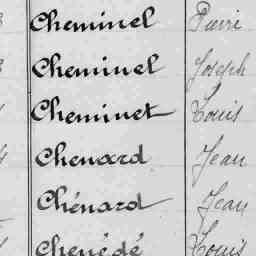 Cheminel Pierre
Cheminel Joseph
Cheminet Louis
Chenard Jean
Chénard Jean
Chenédé Louis